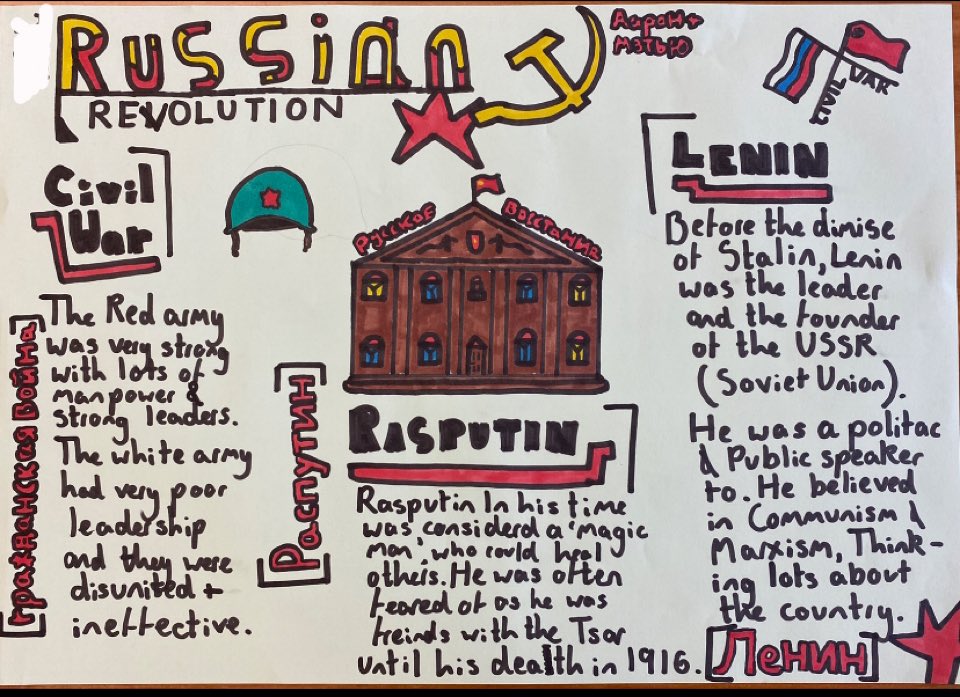 RUSSIAN
REVOLUTION
Аарон +
мэтью
CIVIL
WAR
Civil
War
The Red army
was very strong
with lots of
manpower &
strong leaders.
The white army
had very poor
leadership
and they were
disunited +
ineffective.
Гражданская война
Русское Восстания
Распутин
RASPUTIN
Rasputin In his time
was considerd a 'magic
man', who could heal
others. He was often
feared of as he was
freinds with the Tsar
until his death in 1916.
LENIN
Before the dimise
of Stalin, Lenin
was the leader
and the founder
of the USSR
(Soviet Union).
He was a politac
& Public speaker
to. He believed
in Communism &
Marxism, Think-
ing lots about
the country.
Ленин